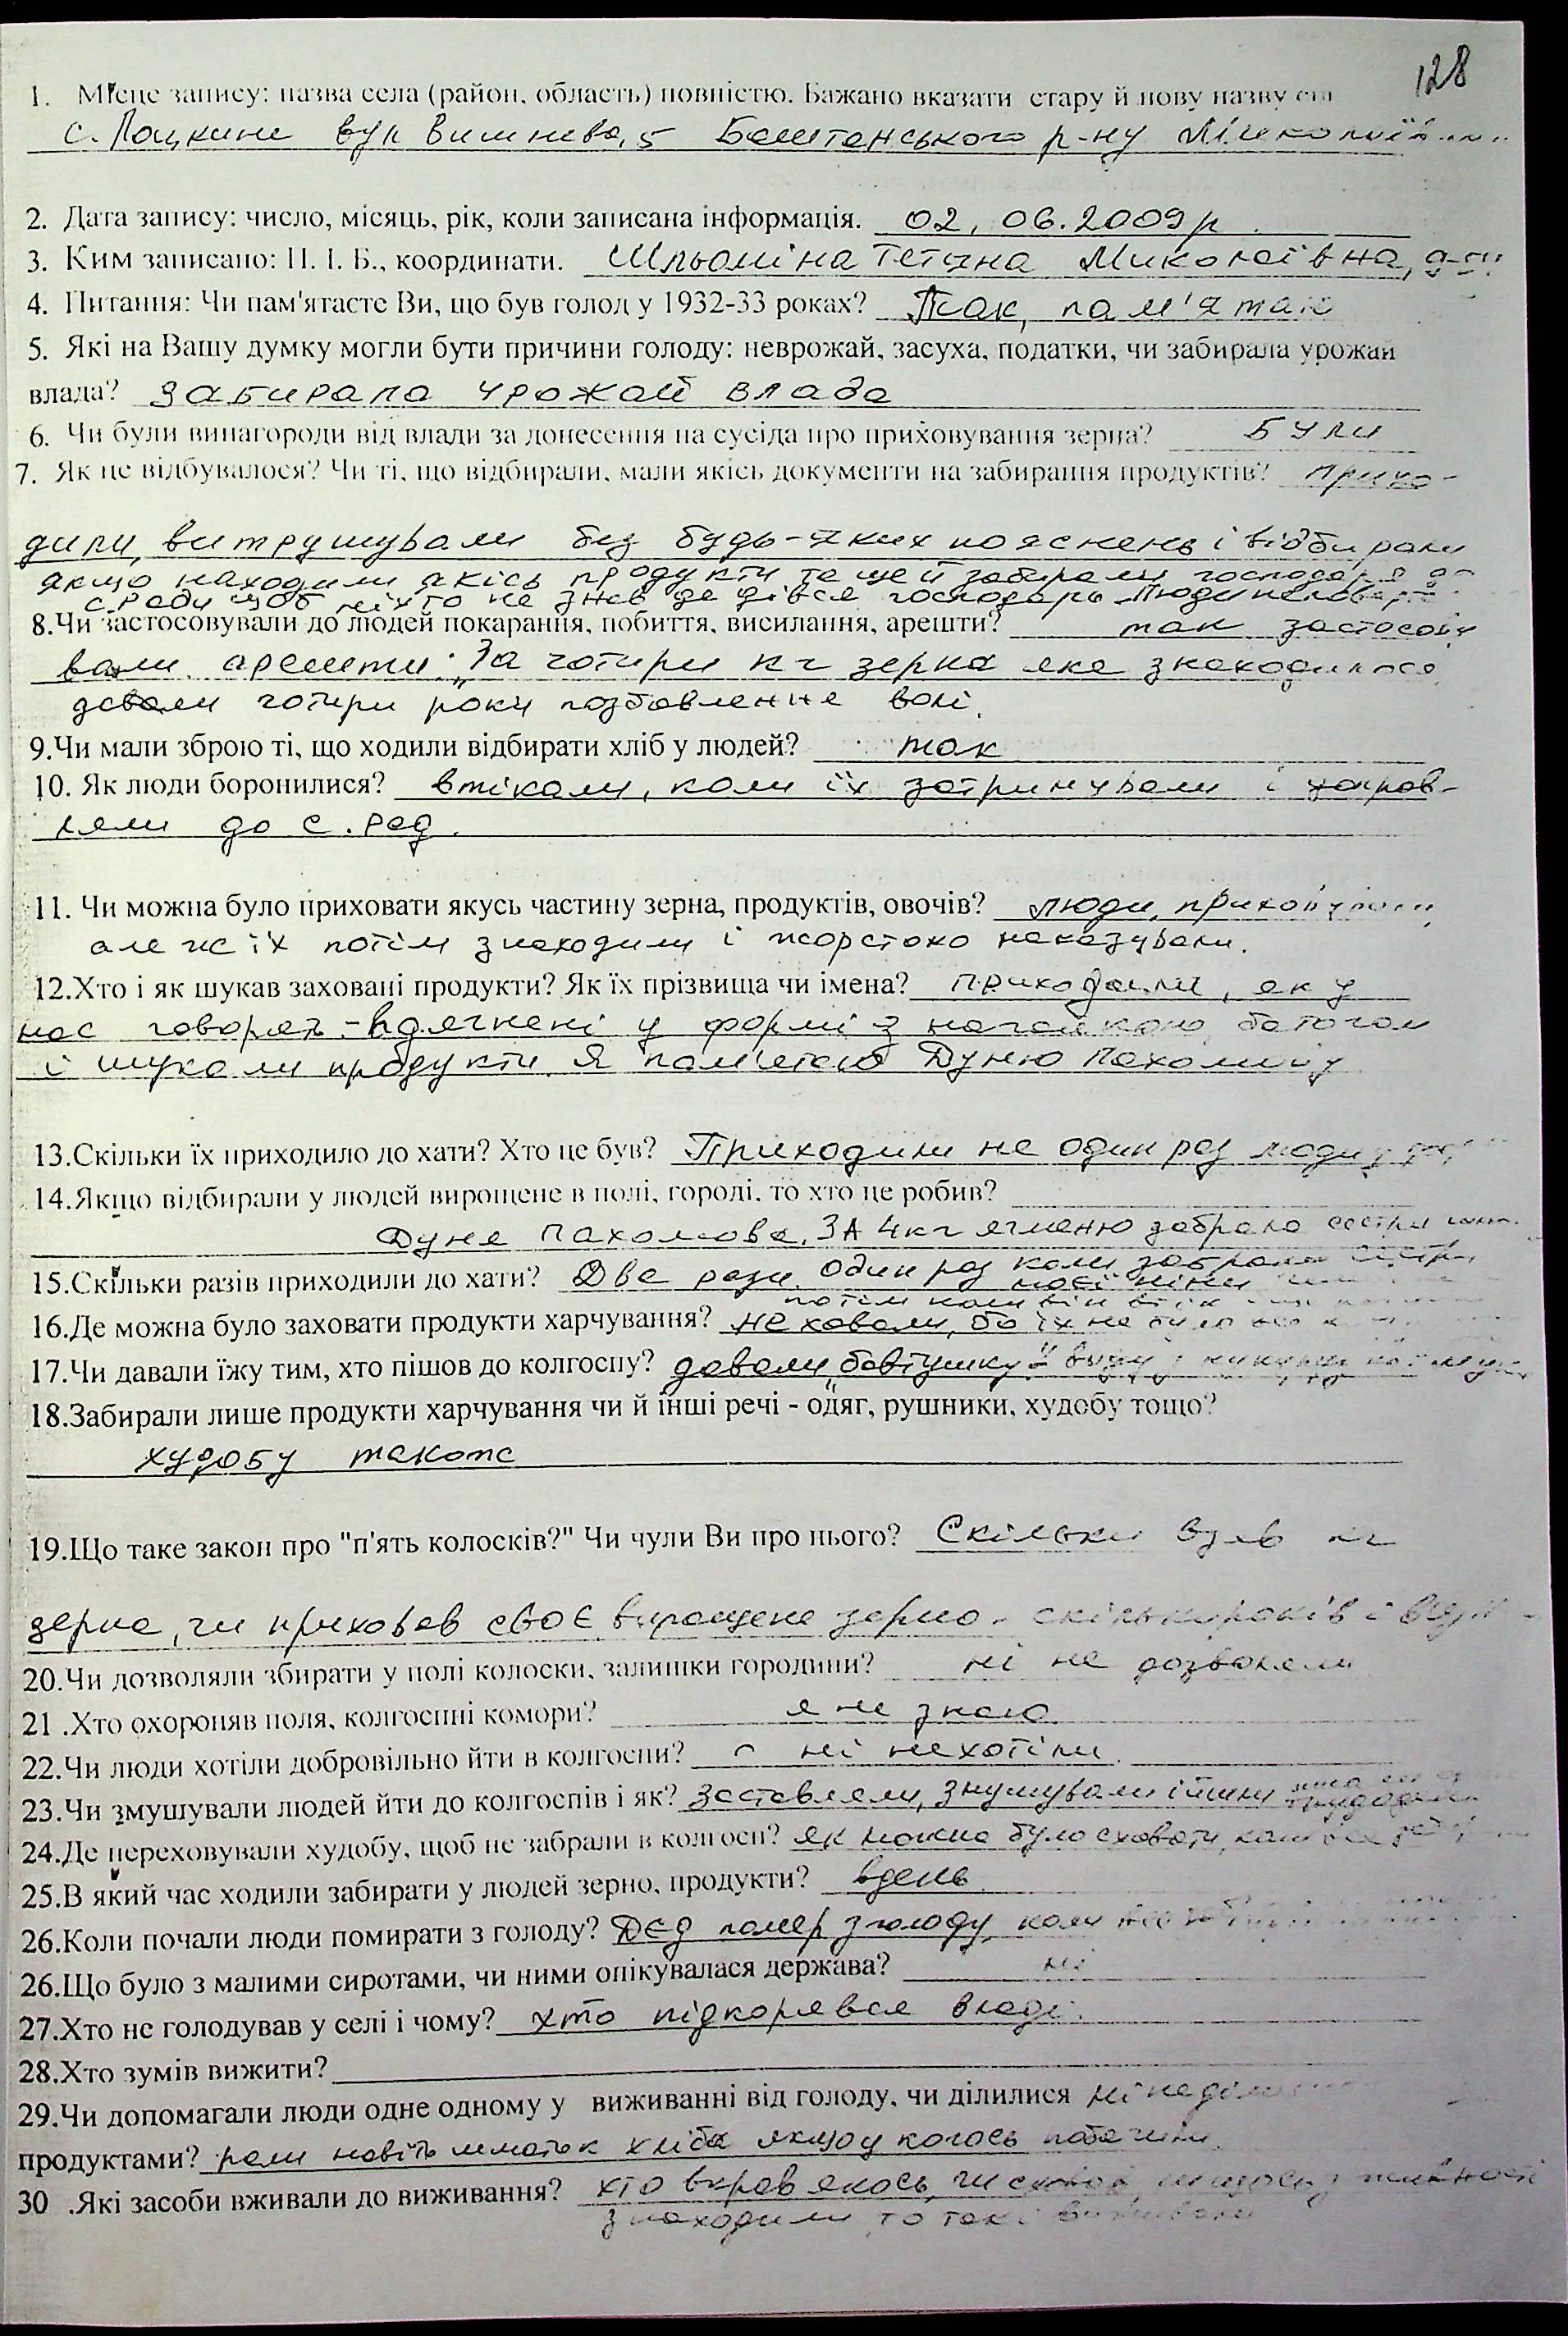 128
1. Місце запису: назва села (район, область) повністю. Бажано вказати стару й нову назву
с. Лоцкине вул Вишнева, 5 Баштанського р-ну
2. Дата запису: число, місяць, рік, коли записана інформація. 02. 06. 2009 р.
3. Ким записано: П. І. Б., координати. Шльоміна Тетяна Миколаївна,
4. Питання: Чи пам'ятаєте Ви, що був голод у 1932-33 роках? Так, пам'ятаю
5. Які на Вашу думку могли бути причини голоду: неврожай, засуха, податки, чи забирала урожай
влада? забирала урожай влада
6. Чи були винагороди від влади за донесення на сусіда про приховування зерна? Були
7. Як це відбувалося? Чи ті, що відбирали, мали якісь документи на забирання продуктів? прихо-
дили, витрушували без будь-яких пояснень і відбирали
якщо находили якісь продукти та ще й забирали господаря до
с.ради щоб ніхто не знав де дівся господарь
8.Чи застосовували до людей покарання, побиття, висилання, арешти? так застосову
вали арешти. "За чотири кг зерна яке знаходилося
давали чотири роки позбавлення волі.
9.Чи мали зброю ті, що ходили відбирати хліб у людей? так
10. Як люди боронилися? втікали, коли їх затримували і направ-
ляли до с. рад.
11. Чи можна було приховати якусь частину зерна, продуктів, овочів? люди, приховували,
але ж їх потім знаходили і жорстоко наказували.
12.Хто і як шукав заховані продукти? Як їх прізвища чи імена? приходили, як у
нас говорять - вдягнені у формі з нагайкою, батогом
і шукали продукти. Я пам'ятаю Дуню Пахомову
13.Скільки їх приходило до хати? Хто це був? Приходили не один раз люди з
14.Якщо відбирали у людей вирощене в полі, городі, то хто це робив?
Дуня Пахомова. ЗА 4кг ячменю забрала сестри
15.Скільки разів приходили до хати? Два рази. Один раз коли забрали
потім коли він втік
16.Де можна було заховати продукти харчування? не ховали, бо їх не було
17.Чи давали їжу тим, хто пішов до колгоспу? давали "бовтушку"
18.Забирали лише продукти харчування чи й інші речі - одяг, рушники, худобу тощо?
худобу також
19.Що таке закон про "п'ять колосків?" Чи чули Ви про нього? Скільки взяв кг
зерна, чи приховав своє вирощене зерно - скільки років і
20.Чи дозволяли збирати у полі колоски, залишки городини? ні не дозволяли
21 .Хто охороняв поля, колгоспні комори? я не знаю
22.Чи люди хотіли добровільно йти в колгоспи? ні нехотіли
23.Чи змушували людей йти до колгоспів і як? заставляли, знушували і
24.Де переховували худобу, щоб не забрали в колгосп? як можна було сховати, коли
25.В який час ходили забирати у людей зерно, продукти? вдень
26.Коли почали люди помирати з голоду? Дєд помер з голоду, коли
26.Що було з малими сиротами, чи ними опікувалася держава? ні
27.Хто не голодував у селі і чому? хто підкорявся владі.
28.Хто зумів вижити?
29.Чи допомагали люди одне одному у виживанні від голоду, чи ділилися
продуктами? рали навіть шматок хліба якщо у когось побачили
30 .Які засоби вживали до виживання? хто вкрав якось, чи
знаходили то так і виживали